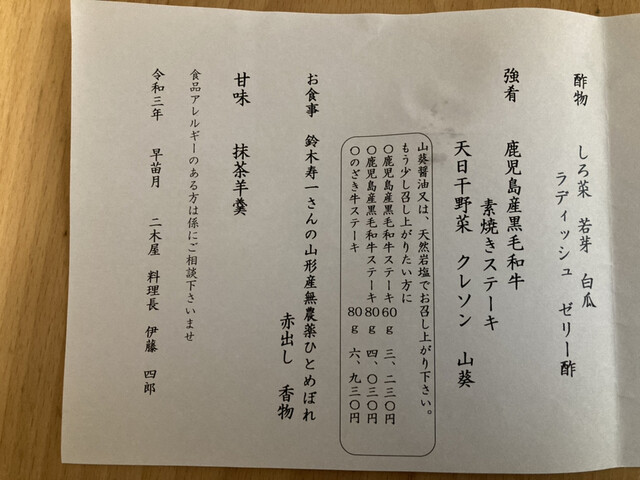 酢物　しろ菜　若芽　白瓜
ラディッシュ　ゼリー酢
強肴　鹿児島産黒毛和牛
素焼きステーキ
天日干野菜　クレソン　山葵
山葵醤油又は、天然岩塩でお召し上がり下さい。
もう少し召し上がりたい方に
〇鹿児島産黒毛和牛ステーキ60g　三、二三〇円
〇鹿児島産黒毛和牛ステーキ80g　四、〇三〇円
〇のざき牛ステーキ　80g　六、九三〇円
お食事　鈴木寿一さんの山形産無農薬ひとめぼれ
赤出し　香物
甘味　抹茶羊羹
食品アレルギーのある方は係にご相談下さいませ
令和三年　早苗月　二木屋　料理長　伊藤　四郎